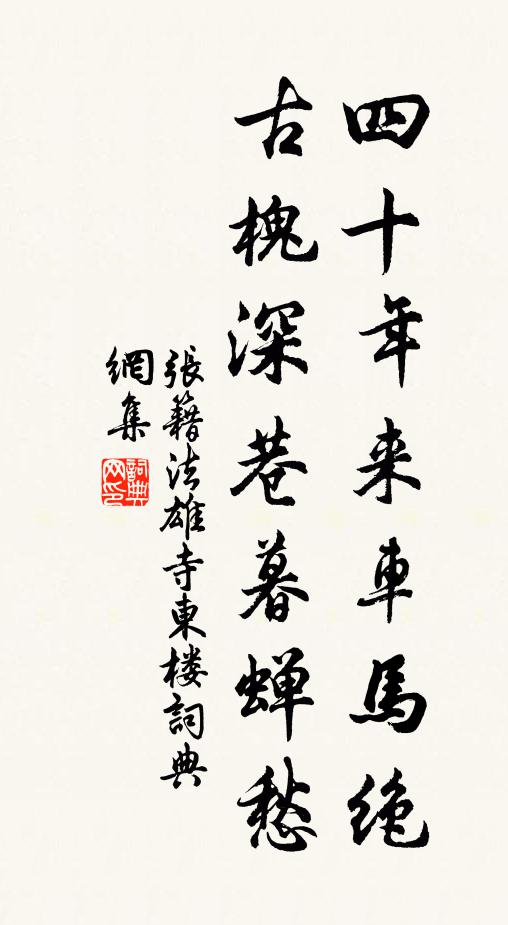 四十年来車馬绝
古槐深巷暮蝉愁
張籍法雄寺東楼詞典
網集
詞典网印